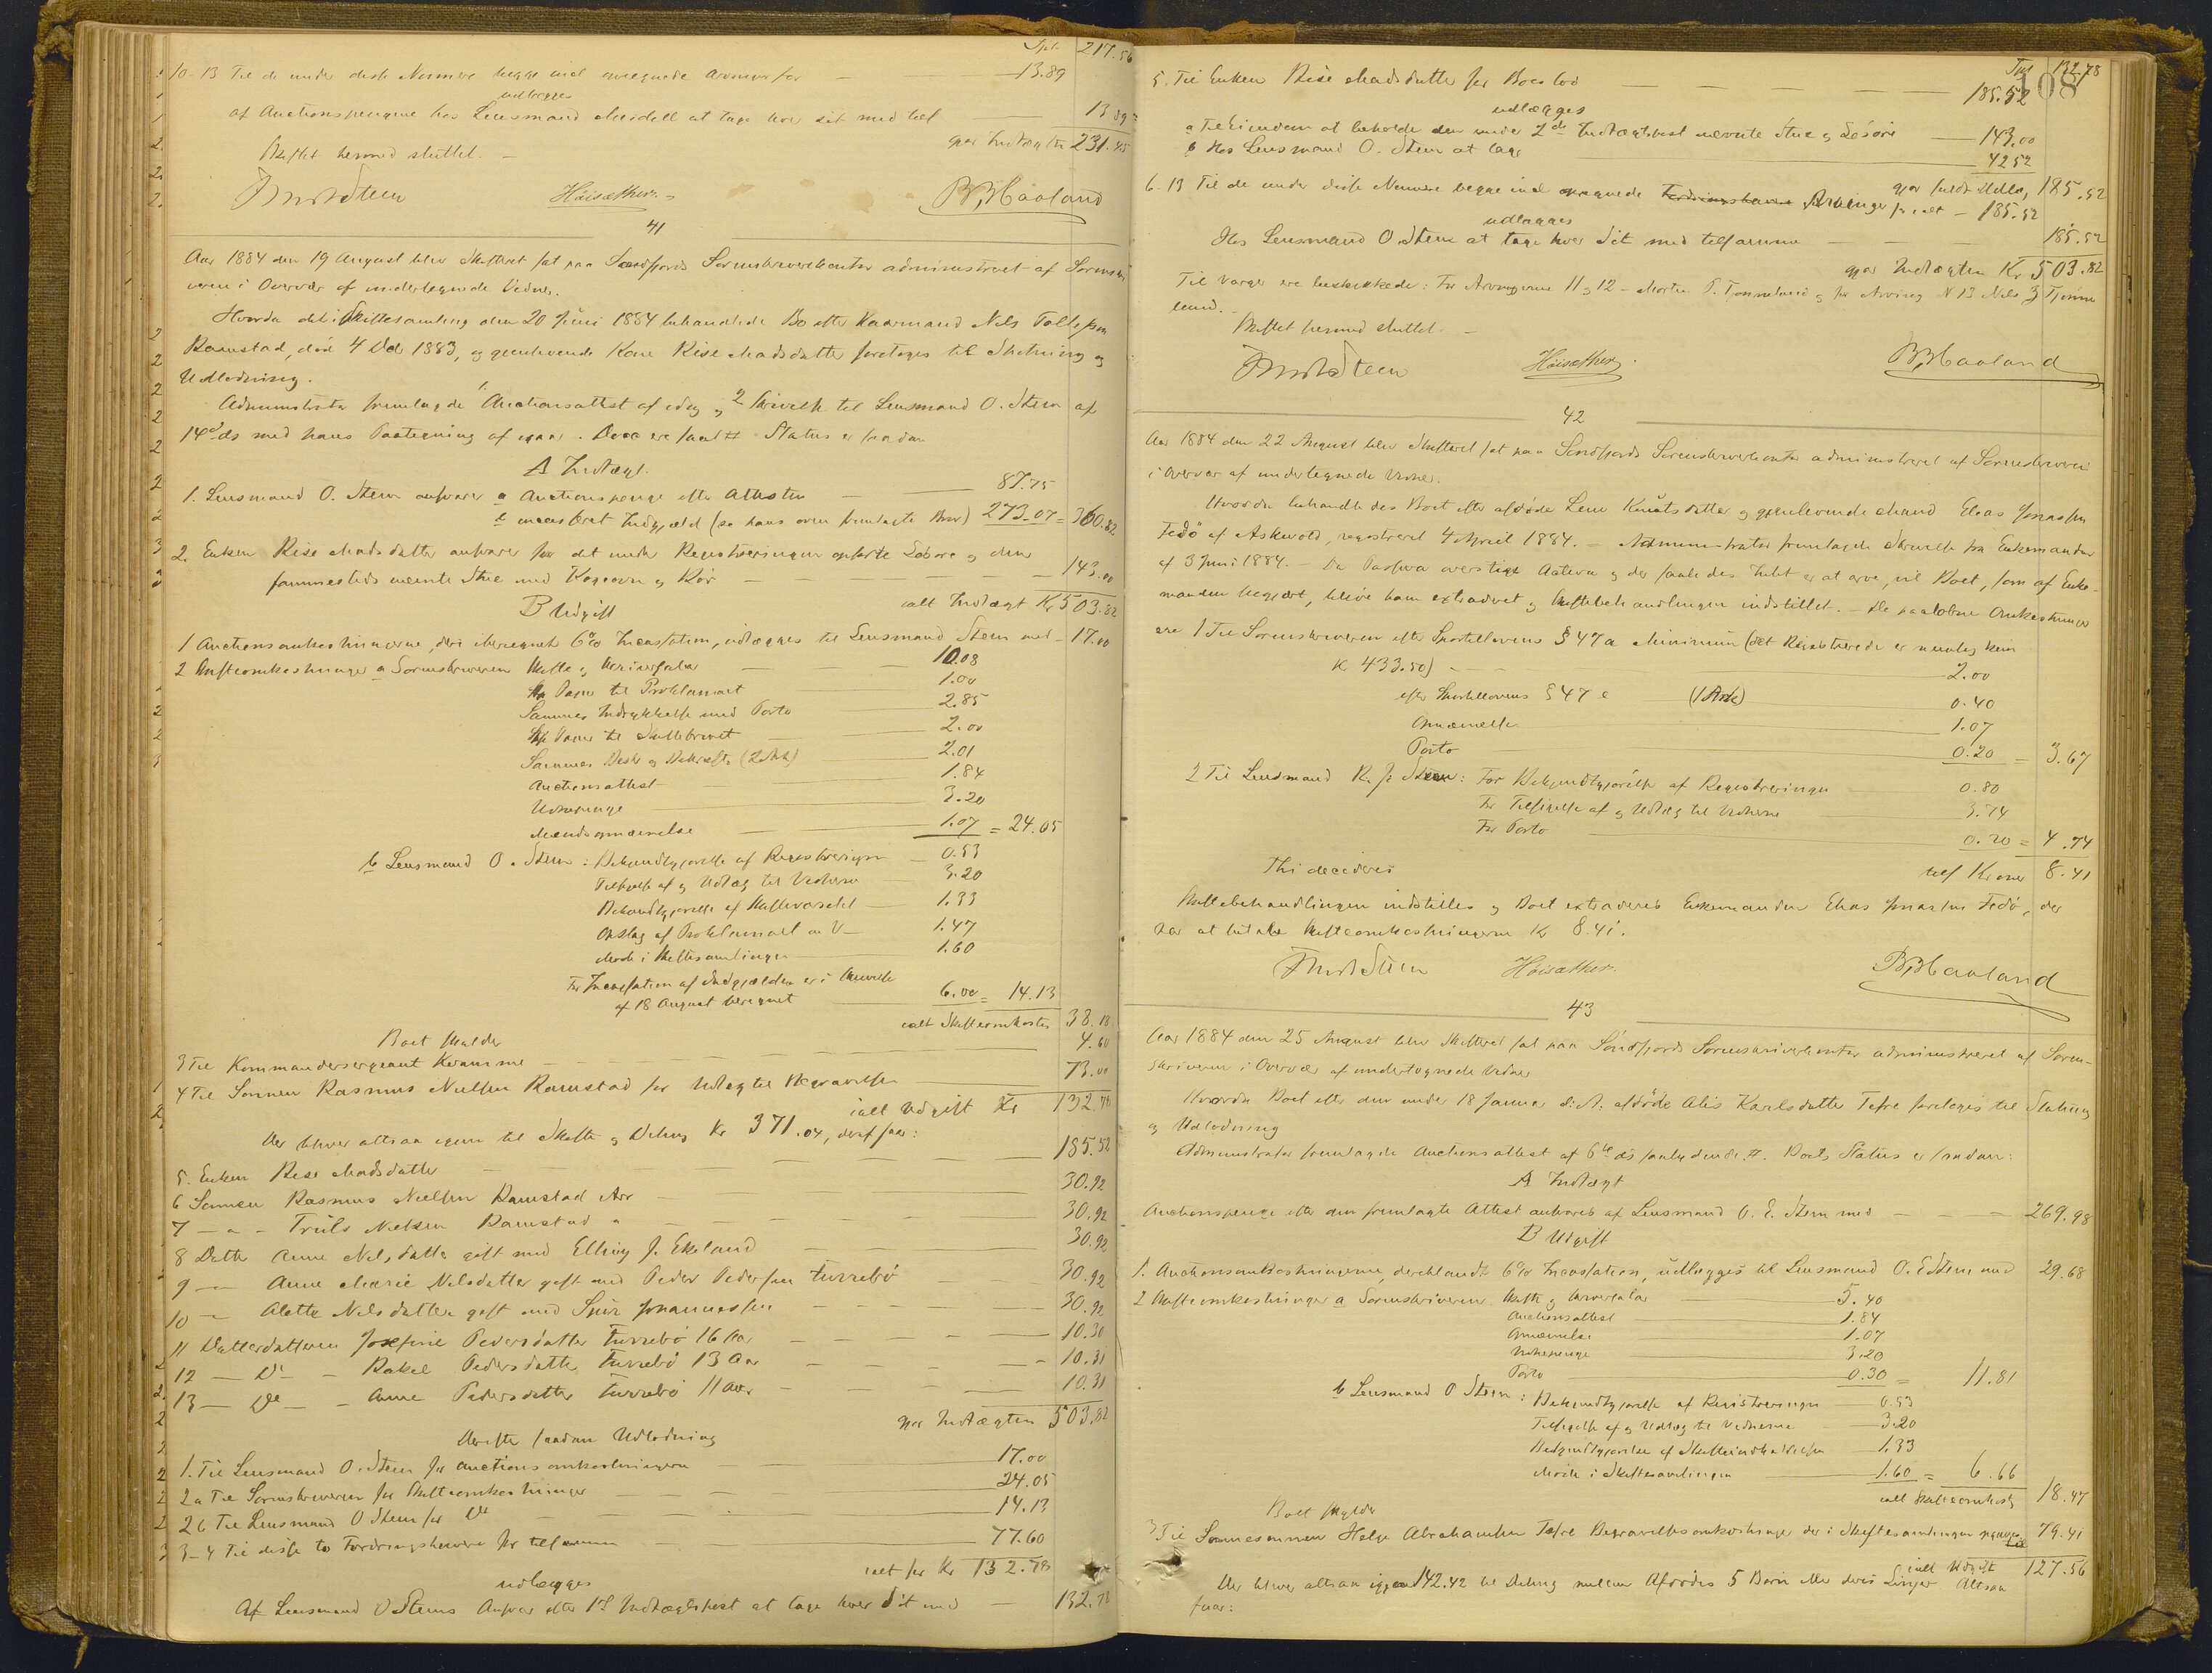 Tpt. 217.56
10-13 Til de under disse Numere begge incl anregnede Arvinger for — 13.89
udlægges
af Auctionspengene hos Lensmand Meidell at tage hver sit med tilf 13.89
gjør Indtægten 231.45
Skiftet hermed sluttet. —
Høisæther. B.B. Haaland
41
Aar 1884 den 19 August blev Skifteret sat paa Søndfjords Sorenskriverkontor administreret af Sorenskri
veren i Overvær af undertegnede Vidner.
Hvorda det i Skiftesamling den 20 Juni 1884 behandlede Bo efter Kaarmand Nils Tollefsen
Ramstad, død 4 Dec 1883, og gjenlevende Kone Rise Madsdatter foretoges til Slutning og
Udlodning.
Administrator fremlagde Auctionsattest af idag og 2 Skrivelse til Lensmand O. Steen af
14de ds med hans Paategning af igaar. Disse ere saal # Status er saadan
A Indtægt.
1. Lensmand O. Steen ansvarer a Auctionspenge efter Attesten — 87.75
b incasseret Indgjæld (se hans oven fremlagte Brev) 273.07 = 360.82
2. Enken Rise Madsdatter ansvarer for det under Registreringen opførte Løsøre og den
sammesteds nævnte Stue med Kogeovn og Rør — 143.00
ialt Indtægt Kr 503.82
B Udgift
1 Auctionsomkostningerne, deri iberegnet 6% Incassation, udlægges til Lensmand Steen med — 17.00
2 Skifteomkostninger a Sorenskriveren Skifte og Skriversalær 10.08
St. Papir til Proklamaet 1.00
Sammes Indrykkelse med Porto 2.85
St. Papir til Skiftebrevet 2.00
Sammes Beskr og Bekræft (2 Ark) 2.01
Auctionsattest 1.84
Vidnepenge 3.20
Mændsopnævnelse 1.07 = 24.05
b Lensmand O. Steen: Bekjendtgjørelse af Registreringen 0.53
Tilsigelse af og Udlæg til Vidnerne 3.20
Bekjendtgjørelse af Skiftevarslet 1.33
Opslag af Proklamaet m V— 1.47
Møde i Skiftesamlingen 1.60
For Incassation af Indgjælden er i Skrivelse
af 18 August beregnet 6.00 = 14.13
ialt Skifteomkostn 38.18
Boet skylder
3 Til Kommandersergeant Kvamme — 4.60
4 Til Sønnen Rasmus Nielsen Ramstad for Udlæg til Begravelsen 73.00
ialt Udgift Kr 132.78
Der bliver altsaa igjen til Skifte og Deling Kr 371.04, deraf faar:
5. Enken Rise Madsdatter — 185.52
6 Sønnen Rasmus Nielsen Ramstad Arv — 30.92
7 — " — Truls Nielsen Ramstad " 30.92
8 Datter Anne Nilsdatter gift med Elling J. Ekeland 30.92
9 — Anne Marie Nilsdatter gift med Peder Pedersen Turrebø 30.92
10 — Alette Nilsdatter gift med Sjur Johannessen 30.92
11 Datterdatteren Josefine Pedersdatter Turrebø 16 Aar 10.30
12 — Do — Rakel Pedersdatter Turrebø 13 Aar 10.31
13 — Do — Anne Pedersdatter Turrebø 11 Aar 10.31
gjør Indtægten 503.82
Derefter saadan Udlodning
1. Til Lensmand O. Steen for Auctionsomkostningerne 17.00
2a Til Sorenskriveren for Skifteomkostninger 24.05
2b Til Lensmand O Steen for Do 14.13
3-4 Til disse to Fordringshavere for tilsammen 77.60
ialt for Kr 132.78
udlægges
Af Lensmand O Steens Ansvar efter 1ste Indtægtspost at tage hver sit med — 132.78
Tpt 132.78
108
5. Til Enken Rise Madsdatter for Boeslod — 185.52
udlægges
a Til Eiendom at beholde den under 2den Indtægtspost nævnte Stue og Løsøre 143.00
b Hos Lensmand O. Steen at tage 42.52
gjør fuldt Udlæg 185.52
6-13 Til de under disse Numere begge incl opregnede Fordringshavere Arvinger for ialt — 185.52
udlægges
Hos Lensmand O Steen at tage hver sit med tilsammen 185.52
gjør Indtægten Kr 503.82
Til Værger ere beskikkede: For Arvingerne 11 og 12 — Morten P. Tonnelund og for Arving N 13 Nils J Tjønne
lund. —
Skiftet hermed sluttet. —
Høisæther. B.B. Haaland
42
Aar 1884 den 22 August blev Skifteret sat paa Søndfjords Sorenskriverkontor administreret af Sorenskriveren
i Overvær af undertegnede Vidner.
Hvorda behandledes Boet efter afdøde Lene Knutsdatter og gjenlevende Mand Elias Jonassen
Fedø af Askevold, registreret 4 April 1884. — Administrator fremlagde Skrivelse fra Enkemanden
af 3 Juni 1884. — Da Passiva overstige Activa og der saaledes Intet er at arve, vil Boet, som af Enke-
manden begjært, blive ham extraderet og Skiftebehandlingen indstillet. — De paaløbne Omkostninger
ere 1 Til Sorenskriveren efter Sportellovens § 47 a Minimum (det Registrerede er nemlig kun
Kr 433.50) 2.00
efter Sportellovens § 47 e (1 Ark) 0.40
Opnævnelse 1.07
Porto 0.20 = 3.67
2 Til Lensmand R. J. Steen: For Bekjendtgjørelse af Registreringen 0.80
For Tilsigelse af og Udlæg til Vidnerne 3.74
For Porto 0.20 = 4.74
tils Kroner 8.41
Thi decideres
Skiftebehandlingen indstilles og Boet extraderes Enkemanden Elias Jonassen Fedø, der
har at betale Skifteomkostningerne Kr 8.41.
Høisæther. B.B. Haaland
43
Aar 1884 den 25 August blev Skifteret sat paa Søndfjords Sorenskriverkontor administreret af Soren-
skriveren i Overvær af undertegnede Vidner
Hvorda Boet efter den under 18 Januar d: A: afdøde Alis Karlsdatter Tefre foretoges til Slutning
og Udlodning
Administrator fremlagde Auctionsattest af 6te ds saalydende #. Boets Status er saadan:
A Indtægt
Auctionspenge efter den fremlagte Attest ansvares af Lensmand O. E. Steen med 269.98
B Udgift
1. Auctionsomkostningerne, deriblandt 6% Incassation, udlægges til Lensmand O. E Steen med 29.68
2 Skifteomkostninger a Sorenskriveren Skifte og Skriversalær 5.40
Auctionsattest 1.84
Opnævnelse 1.07
Vidnepenge 3.20
Porto 0.30 = 11.81
b Lensmand O Steen: Bekjendtgjørelse af Registreringen 0.53
Tilsigelse af og Udlæg til Vidnerne 3.20
Bekjendtgjørelse af Skifteindkaldelsen 1.33
Møde i Skiftesamlingen 1.60 = 6.66
ialt Skifteomkostn 18.47
Boet skylder
3 Til Sønnesønnen Helge Abrahamsen Tefre Begravelsesomkostninger der i Skiftesamlingen 79.41
ialt Udgift 127.56
Der bliver altsaa igjen 142.42 til Deling mellem Afdødes 5 Børn eller deres Linjer Altsaa
faar: